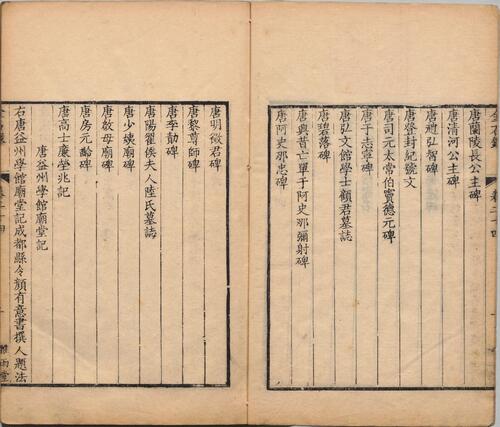 唐蘭陵長公主碑
唐清河公主碑
唐禮弘智碑
唐登封紀號文
唐司元太常伯竇德元碑
唐于志寧碑
唐弘文館學士顧君墓誌
唐碧落碑
唐興昔亡單于阿史那彌射碑
唐阿史那忠碑
唐明徵君碑
唐黎尊師碑
唐李勣碑
唐陽翟侯夫人陸氏墓誌
唐少姨廟碑
唐啟母廟碑
唐房元齡碑
唐高士廉塋兆記
唐益州學館廟堂記
右唐益州學館廟堂記成都縣令顏有意書撰人題法
雅雨堂